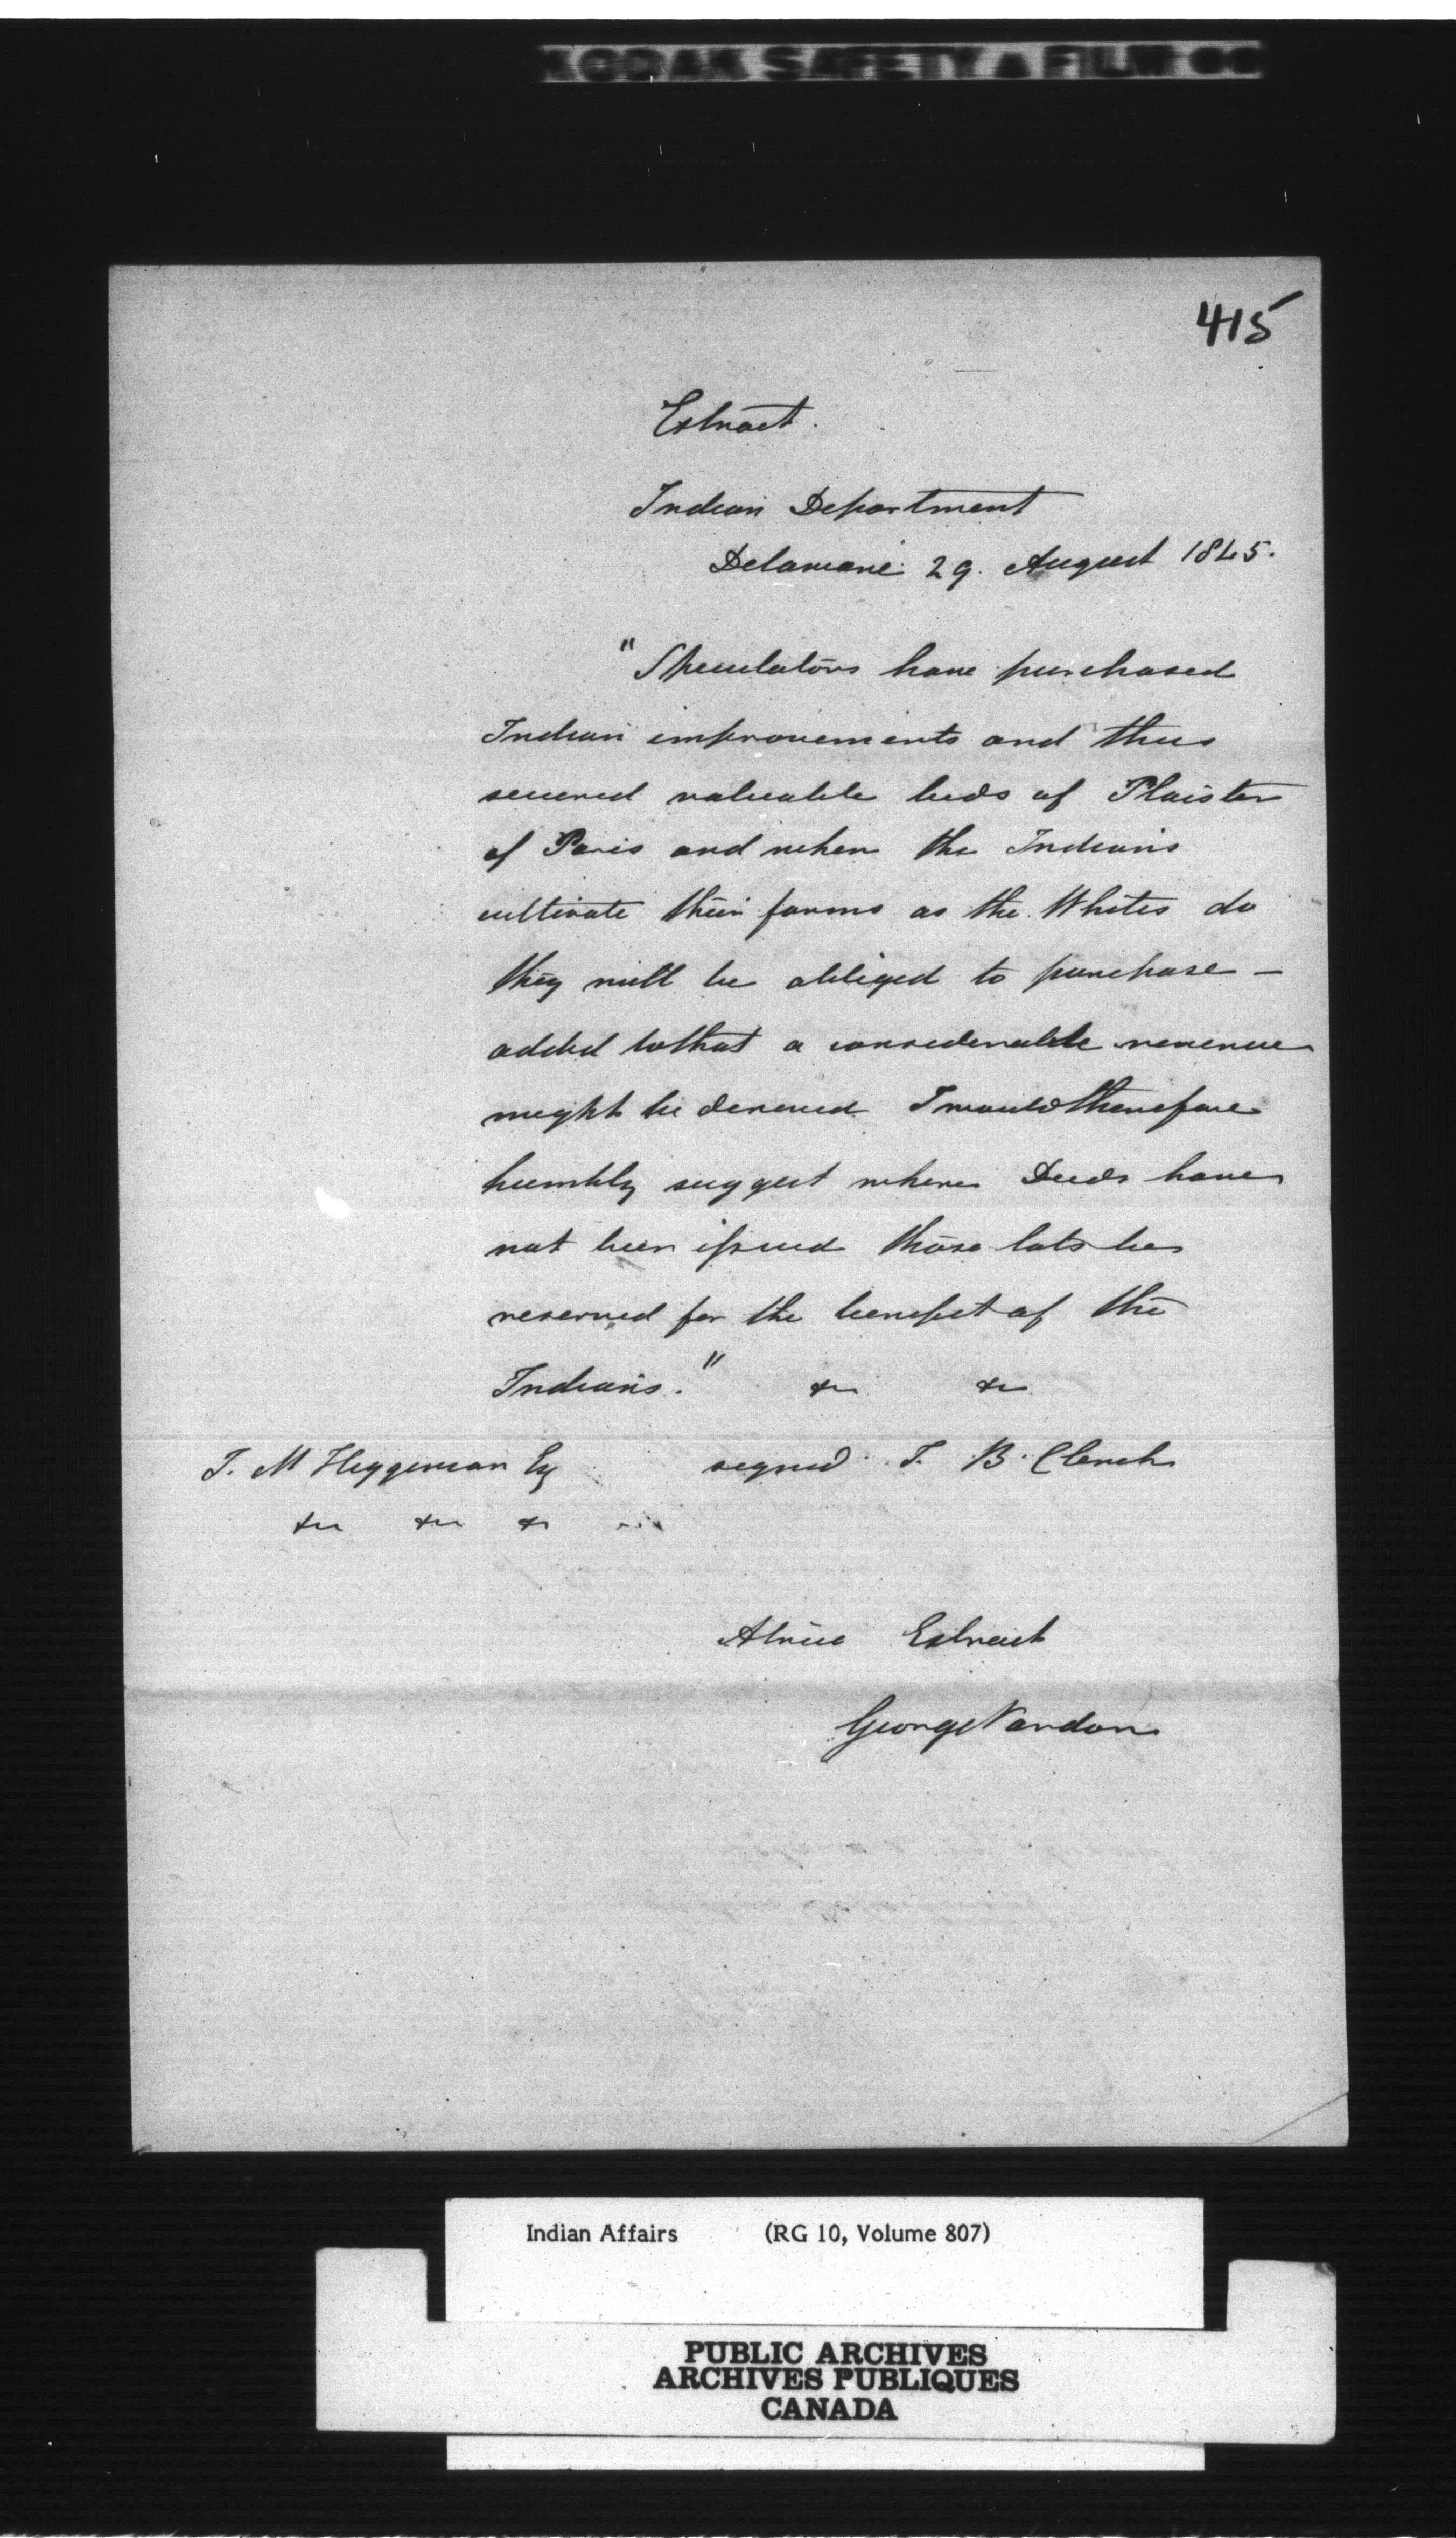 KODAK SAFETY FILM
415
Extract.
Indian Department
Delaware 29. August 1845.
"Speculators have purchased
Indian improvements and thus
secured valuable beds of Plaister
of Paris and when the Indians
cultivate their farms as the Whites do
they will be obliged to purchase –
added to that a considerable revenue
might be derived I would therefore
humbly suggest where Deeds have
not been issued those lots be
reserved for the benefit of the
Indians." &c &c
J. M Higginson Esq signed J. B. Clench
&c &c &c
A true Extract
George Vardon
Indian Affairs (RG 10, Volume 807)
PUBLIC ARCHIVES
ARCHIVES PUBLIQUES
CANADA